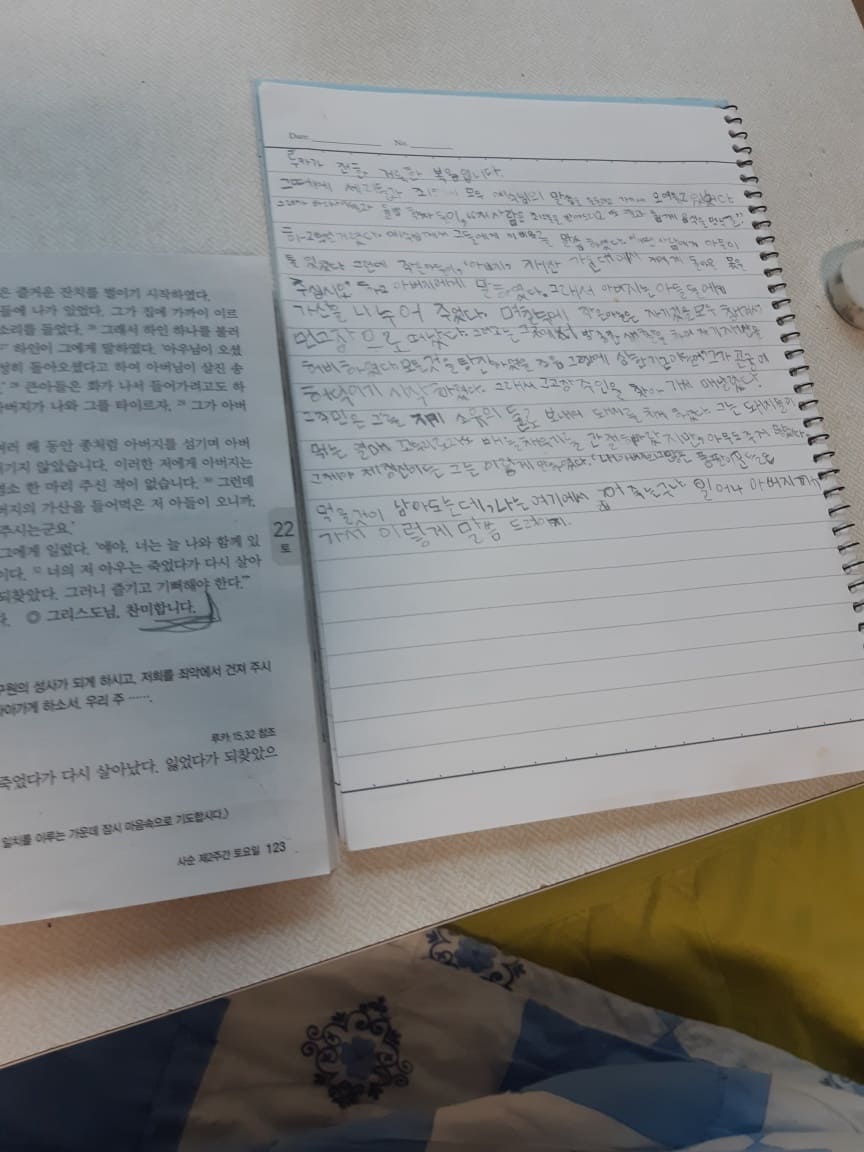 은 즐거운 잔치를 벌이기 시작하였다.
들에 나가 있었다. 그가 집에 가까이 이르
소리를 들었다. 26 그래서 하인 하나를 불러
27 하인이 그에게 말하였다. '아우님이 오셨
성히 돌아오셨다고 하여 아버님이 살진 송
28 큰아들은 화가 나서 들어가려고도 하
아버지가 나와 그를 타이르자, 29 그가 아버
여러 해 동안 종처럼 아버지를 섬기며 아버
기지 않았습니다. 이러한 저에게 아버지는
염소 한 마리 주신 적이 없습니다. 30 그런데
버지의 가산을 들어먹은 저 아들이 오니까,
주시는군요.'
그에게 일렀다. '얘야, 너는 늘 나와 함께 있
이다. 32 너의 저 아우는 죽었다가 다시 살아
되찾았다. 그러니 즐기고 기뻐해야 한다.'"
다. ◎ 그리스도님, 찬미합니다.
구원의 성사가 되게 하시고, 저희를 죄악에서 건져 주시
아가게 하소서. 우리 주 …….
루카 15,32 참조
죽었다가 다시 살아났다. 잃었다가 되찾았으
일치를 이루는 가운데 잠시 마음속으로 기도합시다.》
사순 제2주간 토요일 123
22
토
Date
No.
루카가 전한 거룩한 복음입니다.
그때에 세리들과 모두 예수님의 말씀을 가까이 모여들고 있었다
하고 투덜거렸다. 예수님께서 그들에게 이 비유를 말씀하셨다. 어떤 사람에게 아들이
둘 있었다 그런데 작은아들이, '아버지, 재산 가운데에서 저에게 돌아올 몫을
주십시오' 하고 아버지에게 말하였다. 그래서 아버지는 아들들에게
가산을 나누어 주었다. 며칠 뒤에 작은아들은 자기 것을 모두 챙겨서
먼 고장으로 떠났다. 그러고는 그곳에서 방종한 생활을 하며 자기 재산을
허비하였다 모든 것을 탕진하였을 즈음 그 고장에 심한 기근이 들어 그가 곤궁에
허덕이기 시작하였다. 그래서 그 고장 주인을 찾아가서 매달렸다.
그 주인은 그를 자기 소유의 들로 보내어 돼지를 치게 하였다. 그는 돼지들이
먹는 열매 꼬투리로라도 배를 채우기를 간절히 바랐지만 아무도 주지 않았다.
그제야 제정신이 든 그는 이렇게 말하였다.
먹을 것이 남아도는데, 나는 여기에서 굶어 죽는구나 일어나 아버지께
가서 이렇게 말씀 드려야지.